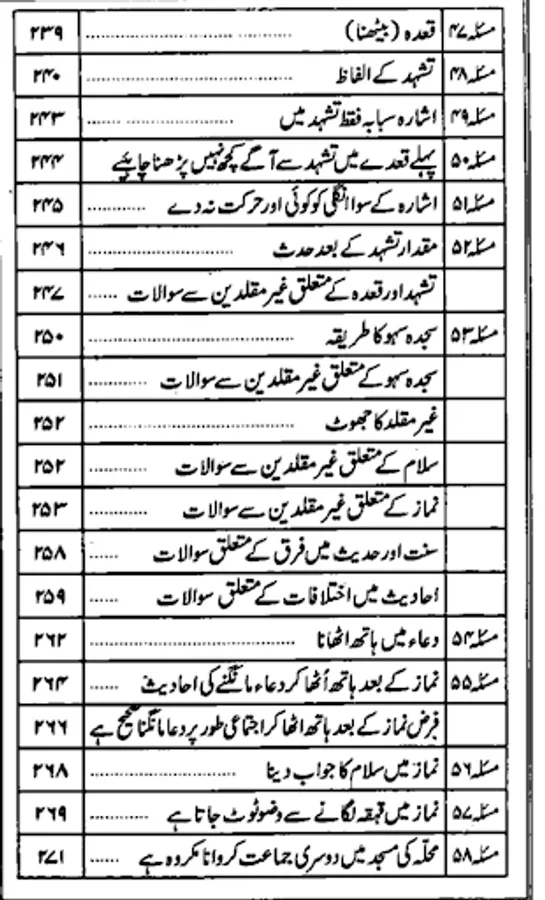 مسئلہ۴۷ قعدہ (بیٹھنا) ........ ۲۳۹
مسئلہ۴۸ تشہد کے الفاظ ........ ۲۴۰
مسئلہ۴۹ اشارہ سبابہ فقط تشہد میں ........ ۲۴۳
مسئلہ۵۰ پہلے قعدے میں تشہد سے آگے کچھ نہیں پڑھنا چاہئیے ۲۴۴
مسئلہ۵۱ اشارہ کے سوا انگلی کو کوئی اور حرکت نہ دے ........ ۲۴۵
مسئلہ۵۲ مقدار تشہد کے بعد حدث ........ ۲۴۶
تشہد اور قعدہ کے متعلق غیر مقلدین سے سوالات ...... ۲۴۷
مسئلہ۵۳ سجدہ سہو کا طریقہ ........ ۲۵۰
سجدہ سہو کے متعلق غیر مقلدین سے سوالات ........ ۲۵۱
غیر مقلد کا جھوٹ ........ ۲۵۲
سلام کے متعلق غیر مقلدین سے سوالات ........ ۲۵۲
نماز کے متعلق غیر مقلدین سے سوالات ........ ۲۵۳
سنت اور حدیث میں فرق کے متعلق سوالات ...... ۲۵۸
احادیث میں اختلافات کے متعلق سوالات ...... ۲۵۹
مسئلہ۵۴ دعاء میں ہاتھ اٹھانا ........ ۲۶۲
مسئلہ۵۵ نماز کے بعد ہاتھ اُٹھا کر دعاء مانگنے کی احادیث ...... ۲۶۴
فرض نماز کے بعد ہاتھ اٹھا کر اجتماعی طور پر دعا مانگنا صحیح ہے ۲۶۶
مسئلہ۵۶ نماز میں سلام کا جواب دینا ........ ۲۶۸
مسئلہ۵۷ نماز میں قہقہ لگانے سے وضو ٹوٹ جاتا ہے ........ ۲۶۹
مسئلہ۵۸ محلّہ کی مسجد میں دوسری جماعت کروانا مکروہ ہے ...... ۲۷۱